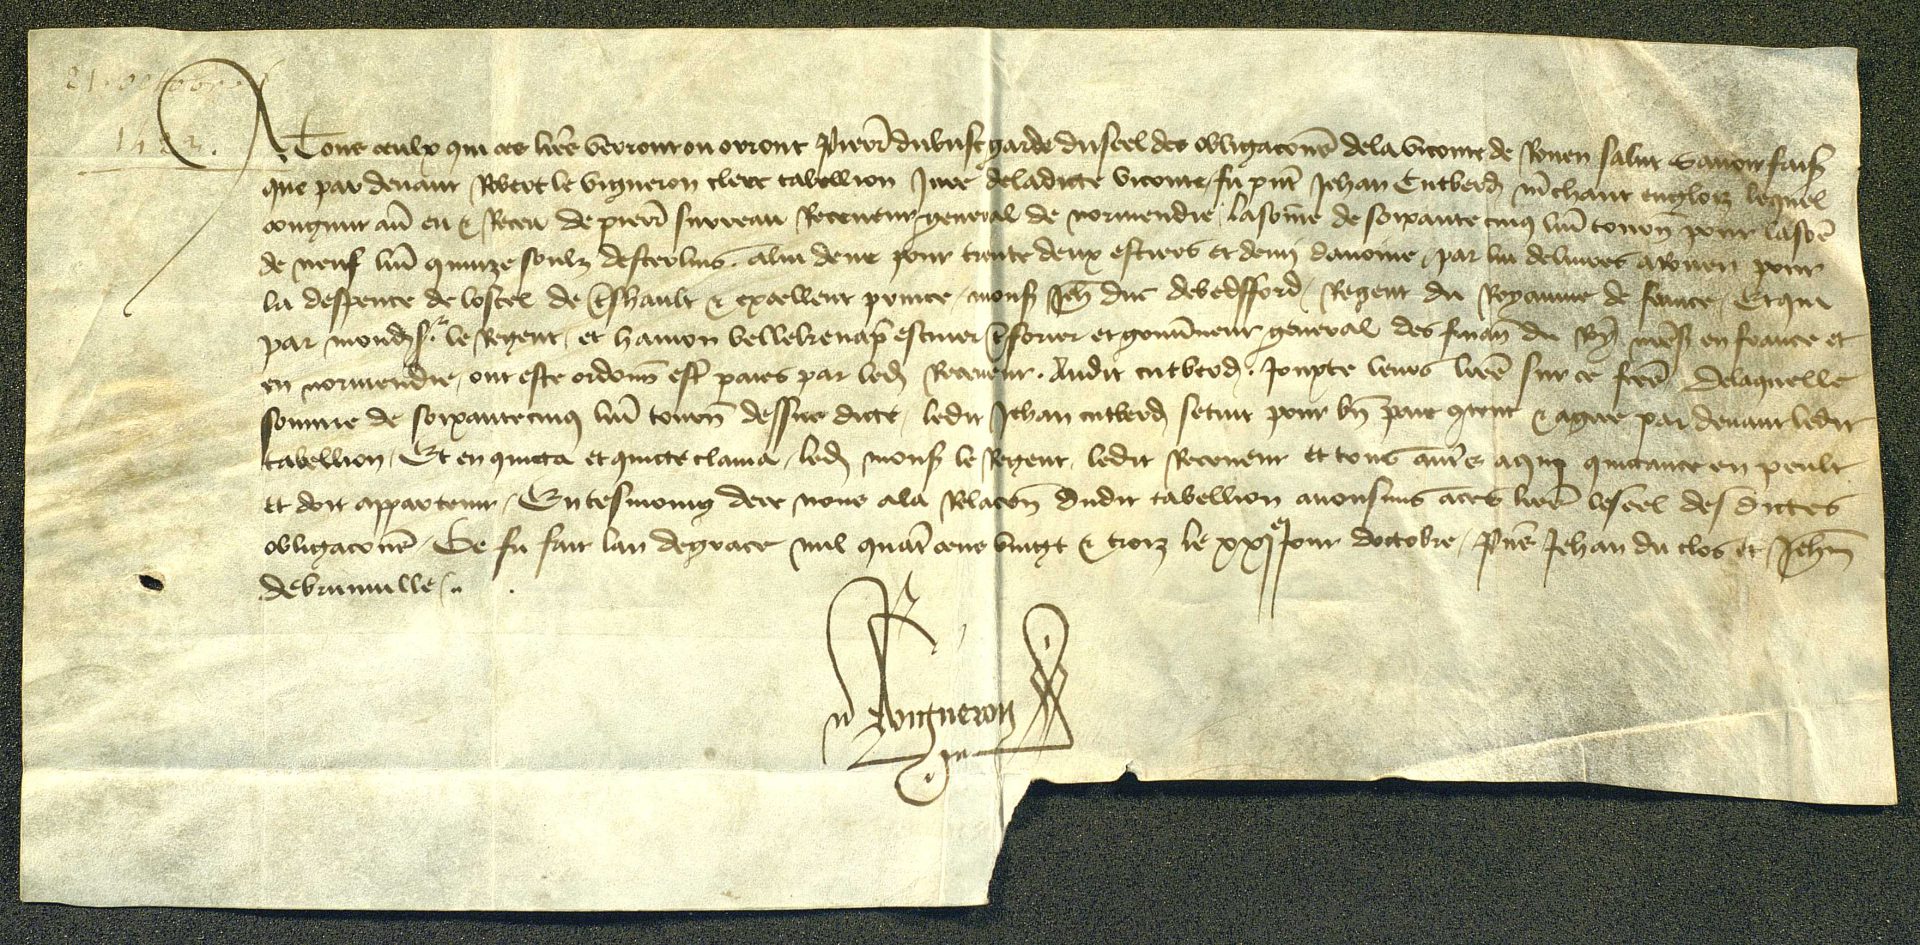 21 octobre
1423.
A Tous ceulx qui ces lrēs verront ou orront Pierrē garde du seel des obligaconē de la viconte de Rouen salut Savoir fais
que par devant Robert le vigneron clerc tabellion Jure de ladicte viconte fu pnt Jehan Cutberd mchant englois lequel
congnut avoir eu & Receu de pierrē surreau Receveur general de normendie la some de soixante cinq liū tourn pour la some
de neuf liū quinze soulz desterlins a lui deue pour trente deux sestiers et demi davoine par lui delivres a Rouen pour
la despence de lostel de tshault & excellent prince mons Jeh duc de bedfford Regent du Royaume de france Et qui
par mond sr le Regent et hamon bellekenap escuier tsorier et gouvneur general des finan du Roy nres en france et
en normendie ont este ordonn estr paies par led Receveur Audit cutberd Jouxte leurs lrēs sur ce De laquelle
somme de soixante cinq liū tourn dessus dicte ledit Jehan cutberd se tint pour bn paie content & agree par devant ledit
tabellion Et en quicta et quicte clama led mons le Regent ledit Receveur et tous autres a qui quictance en peult
et doit appartenir En tesmoing de ce nous a la Relacon dudit tabellion avons mis a ces lrēs le seel des dictes
obligaconē Ce fu fait lan de grace mil quatr cens vingt & trois le xxje jour doctobre Pns Jehan du clos et Jehn
de brunville
R Vigneron